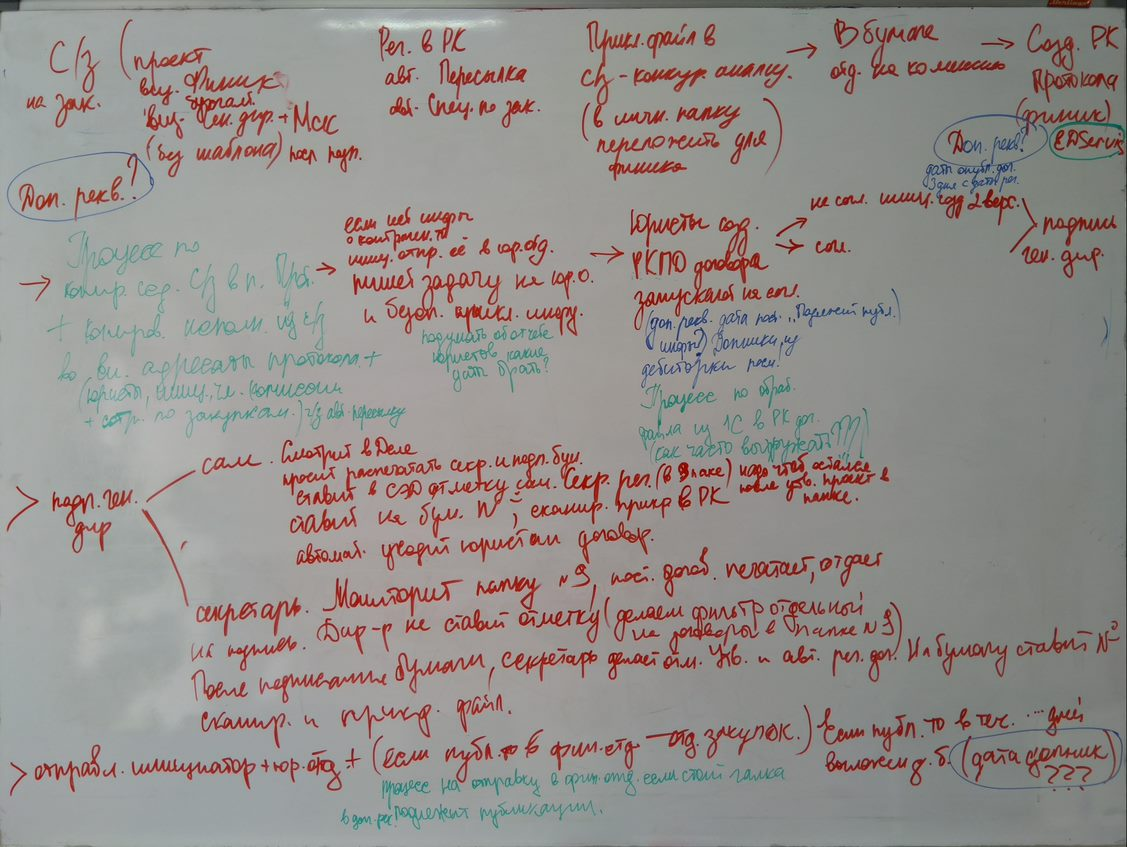 С/з (проект
на зак.
виз. Финик
бухгалт.
виз. Ген. дир. + Мск
(без шаблона) посл подп.
Доп. рекв.?
Рег. в РК
авт. Пересылка
авт. Спец. по зак.
Прикл. файл в
с/з - конкур. анализ.
(в личн. папку
переложить для
финика)
→ В бумаге
отд. на комиссию
→ Созд. РК
Протокола
(финик)
Доп. рекв?
EDServis
дата опубл. дог.
3 дня с даты рег.
→ Процесс по
копир. сод. С/з в п. Прот.
+ копиров. исполн. из с/з
во вн. адресаты протокола +
(юристы, иниц., чл. комиссии
+ сотр. по закупкам.) ч/з авт. пересылку
→ если нет инфы
о контраген. то
иниц. отпр. её в юр. отд.
пишет задачу на юр. о.
и безоп. прикл. инфу.
подумать об отчёте
юристов какие
даты брать?
→ Юристы созд.
РКПД договора
запускают на согл.
(доп. рекв. дата пост. „Подлежит публ.
инфы) Допники из
дебиторки посм.
Процесс по обраб.
файла из 1С в РК дог.
(как часто выгружать???)
не согл. иниц. созд 2 верс.
→ согл.
подпись
ген. дир.
> подп. ген.
дир
сам. Смотрит в Деле
просит распечатать секр. и подп. бум.
ставит в СЭД отметку сам. Секр. рег. (в 9 папке) надо чтоб остался
после утв. проект в
папке.
ставит на бум. №; сканир. прикр в РК
автомат. уходит юристам договор.
секретарь. Мониторит папку №9, пост. догов. печатает, отдает
на подпись. Дир-р не ставит отметку (делаем фильтр отдельный
на договоры в папке №9)
После подписания бумаги, секретарь делает отм. Утв. и авт. рег. дог. На бумагу ставит №
сканир. и прикр. файл.
> отправл. инициатор + юр. отд + (если публ. то в фин. отд - отд. закупок.) Если публ. то в теч. ... дней
выложен д. б. (дата допник)
???
процесс на отправку в фин. отд. если стоит галка
в доп. рек. подлежит публикации.